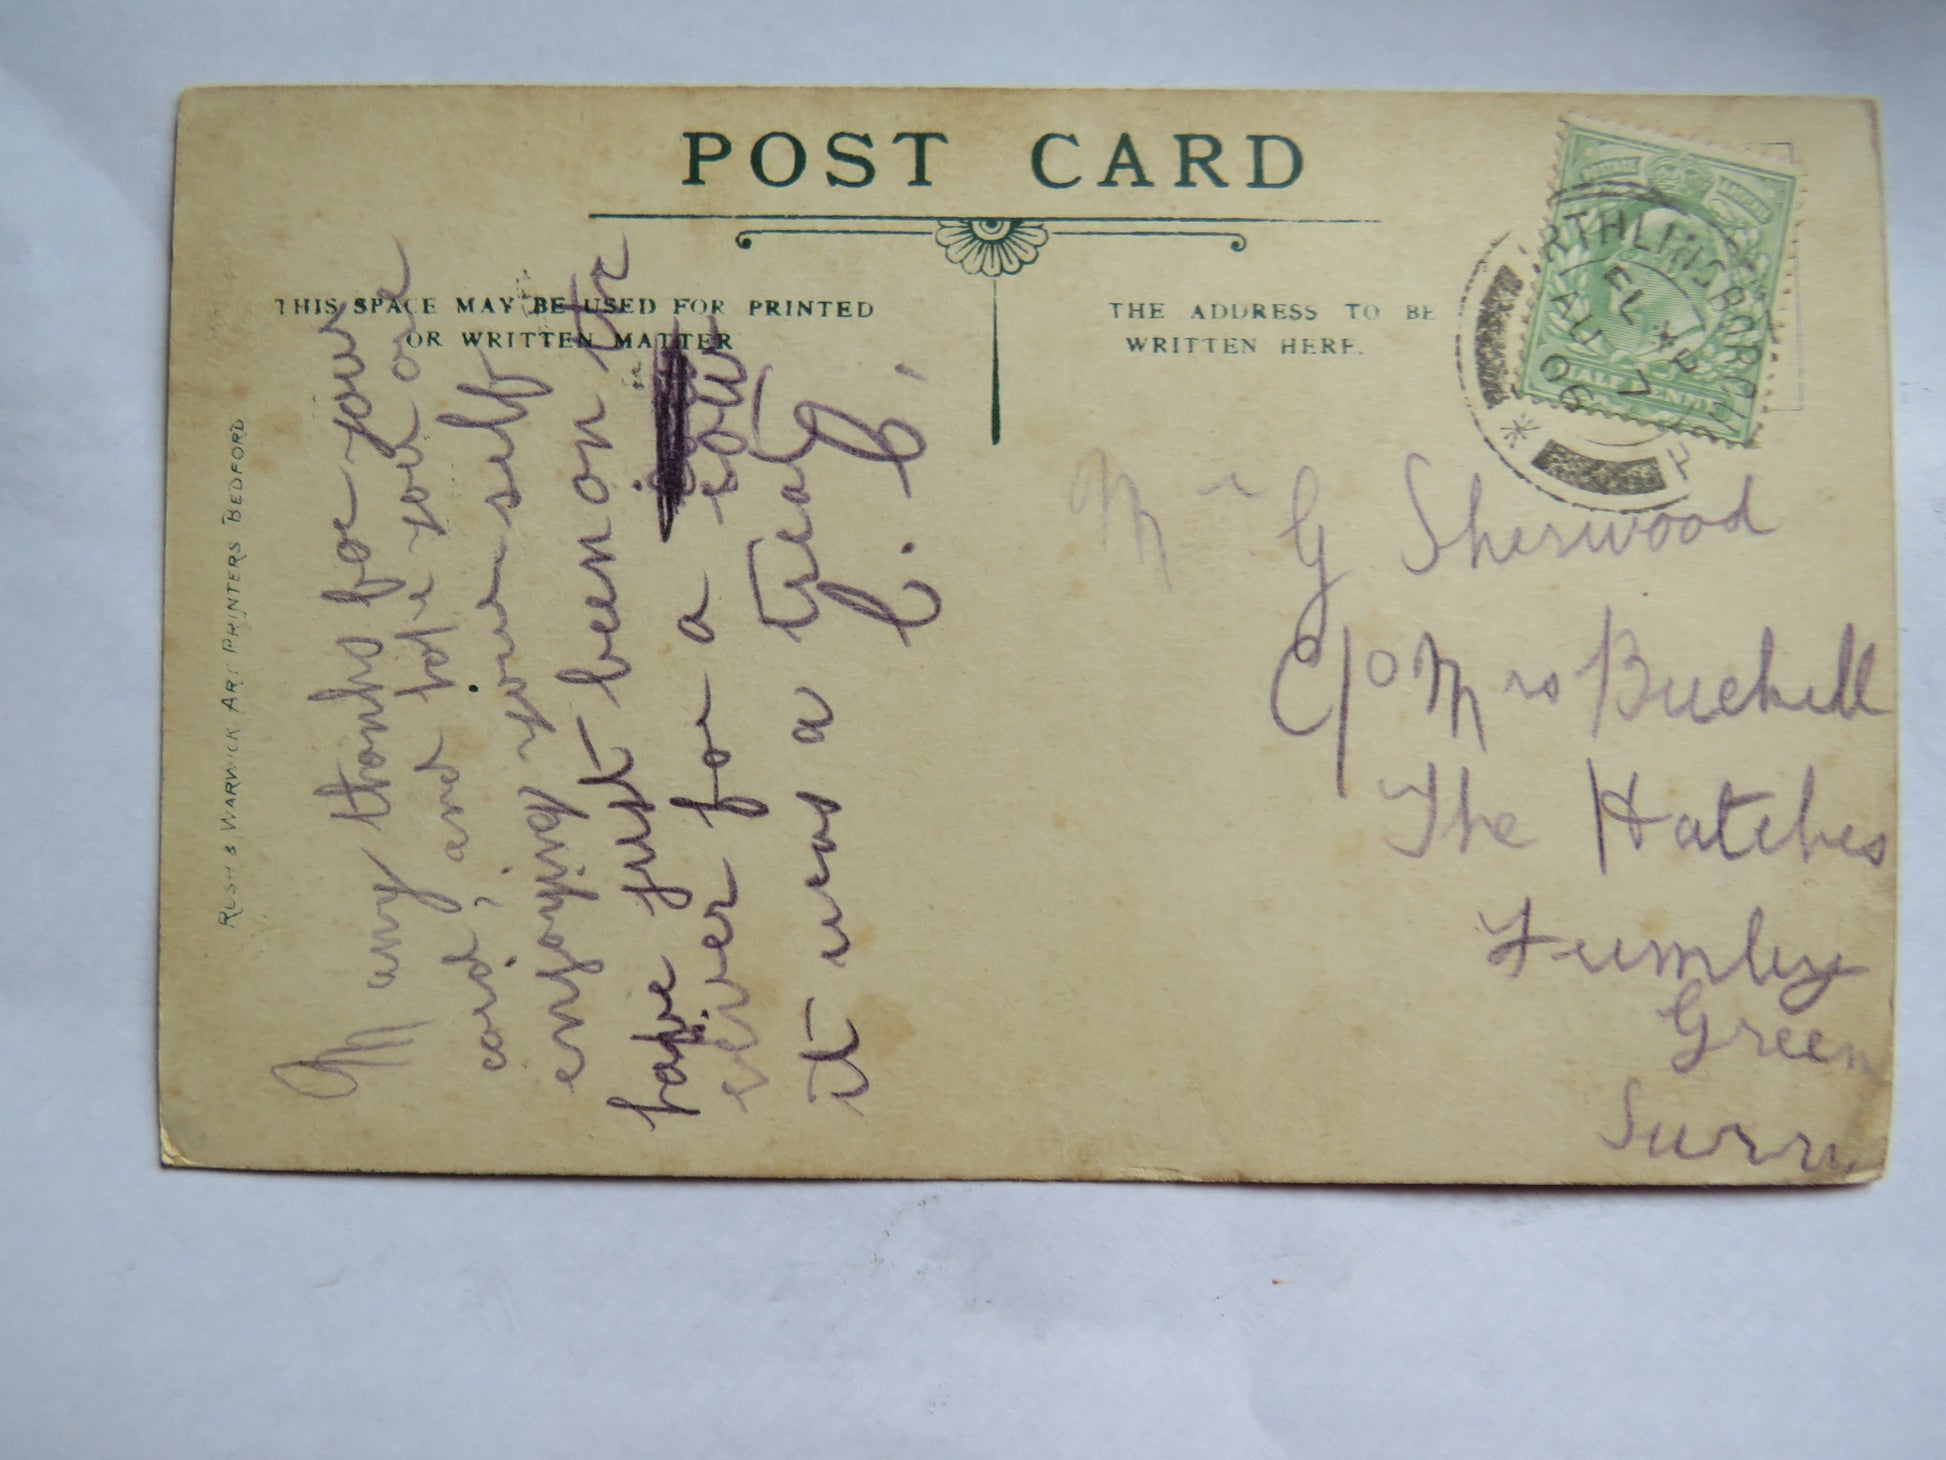 POST CARD
THIS SPACE MAY BE USED FOR PRINTED
OR WRITTEN MATTER
THE ADDRESS TO BE
WRITTEN HERE.
RUSH & WARWICK ART PRINTERS BEDFORD
Many thanks for your
card, and hope you are
enjoying your self
have just been on the
river for a row
it was a treat
C. C.
Mr G Sherwood
C/o Mrs Buckell
The Hatches
Frimley
Green
Surr
IRTHLINGBOROUGH
AU 7
06
HALF PENNY